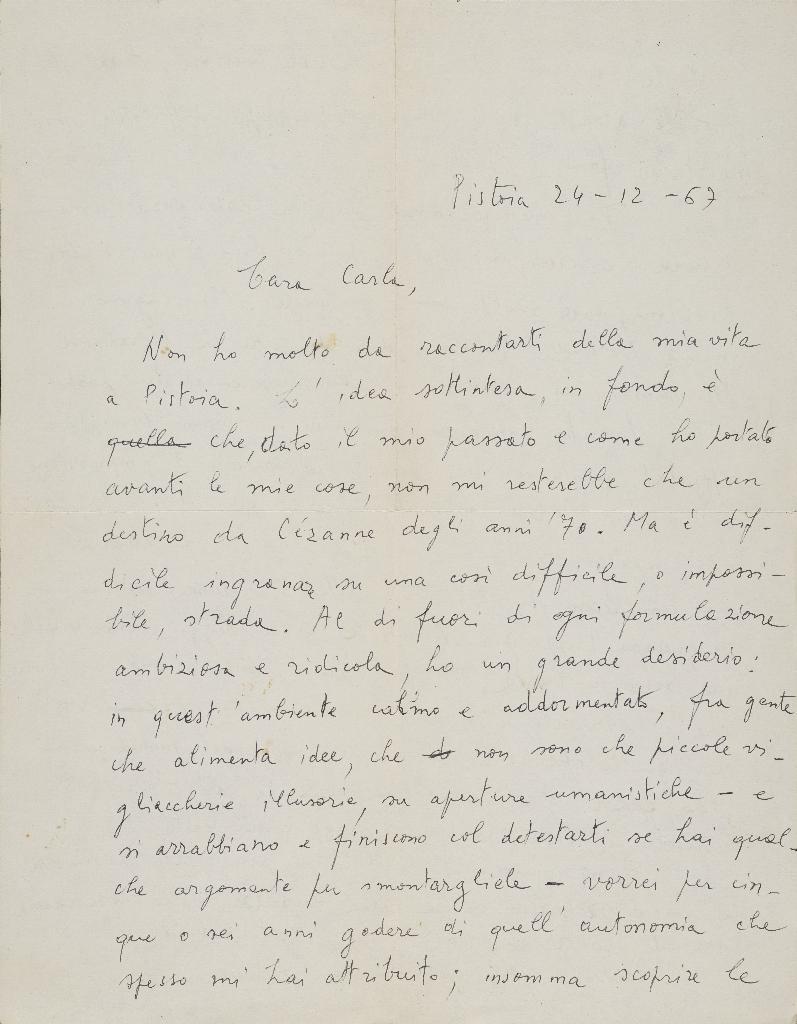 Pistoia 24 - 12 - 67
Cara Carla,
Non ho molto da raccontarti della mia vita
a Pistoia. L'idea sottintesa, in fondo, è
quella che, dato il mio passato e come ho portato
avanti le mie cose, non mi resterebbe che un
destino da Cézanne degli anni '70. Ma è dif-
dicile ingranare su una così difficile, o impossi-
bile, strada. Al di fuori di ogni formulazione
ambiziosa e ridicola, ho un grande desiderio:
in quest'ambiente calmo e addormentato, fra gente
che alimenta idee, che non sono che piccole vi-
gliaccherie illusorie, su aperture umanistiche - e
si arrabbiano e finiscono col detestarti se hai qual-
che argomento per smontargliele - vorrei per cin-
que o sei anni godere di quell'autonomia che
spesso mi hai attribuito; insomma scoprire le